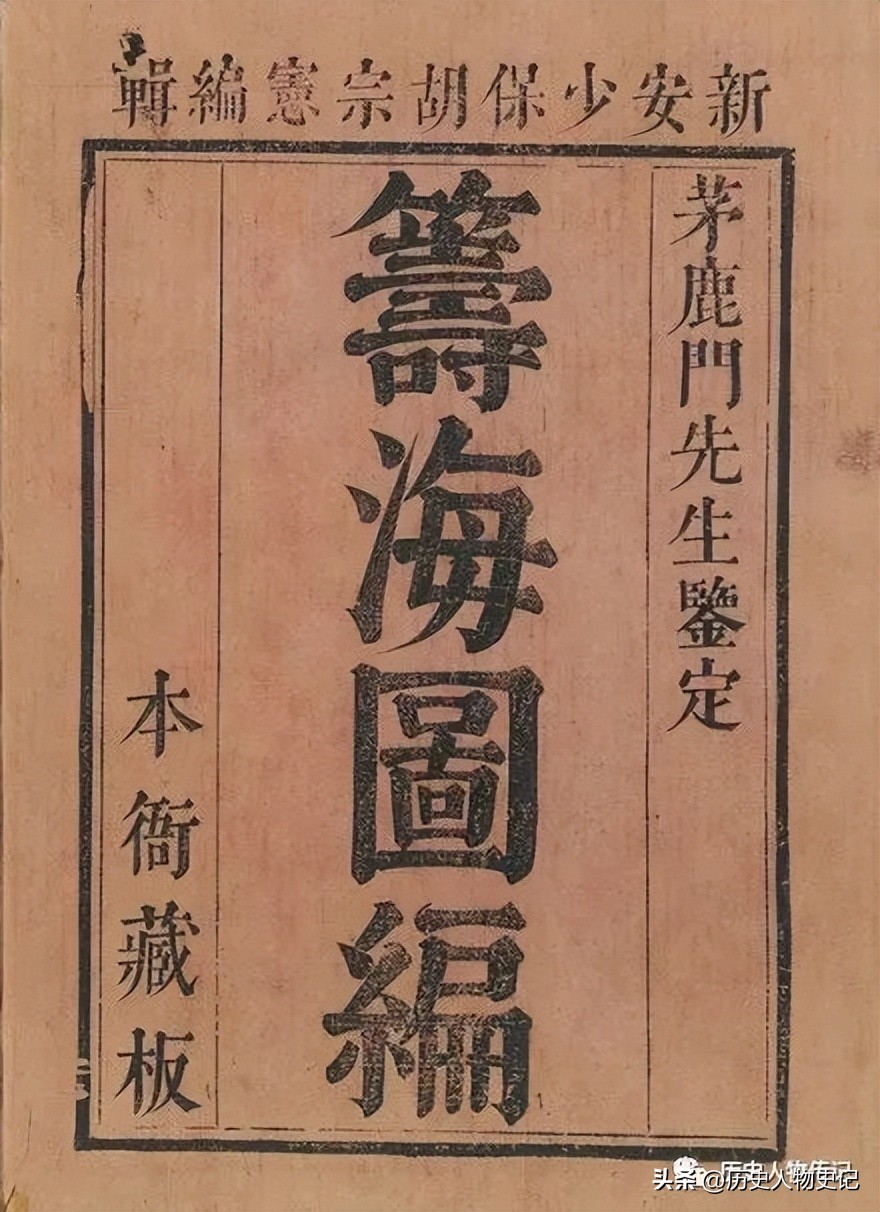 新安少保胡宗憲編輯
茅鹿門先生鑒定
籌海圖編
本衙藏板
历史人物传记
头条@历史人物史记